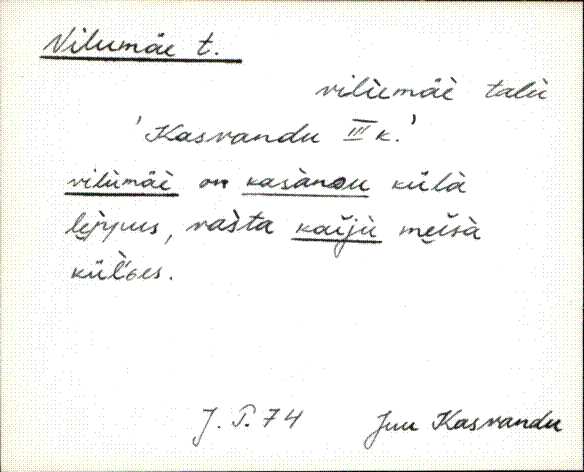 Vilumäe t.
vilùmäè talù
'Kasvandu III k.'
vilùmäè on kasànDu külà
lèp̀pus, vašta kaìjù meìsà
küĺ̀Ges.
J. T. 74 Juu Kasvandu